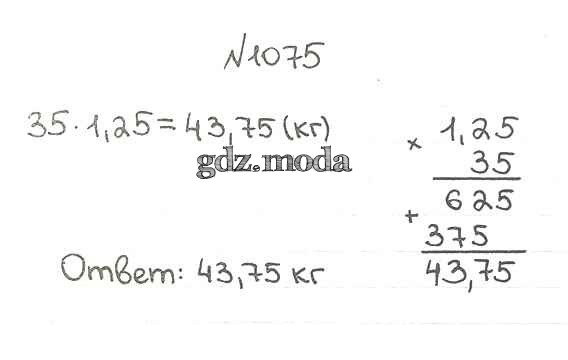 №1075
35·1,25=43,75(кг)
gdz.moda
× 1,25
35
625
+
375
43,75
Ответ: 43,75 кг